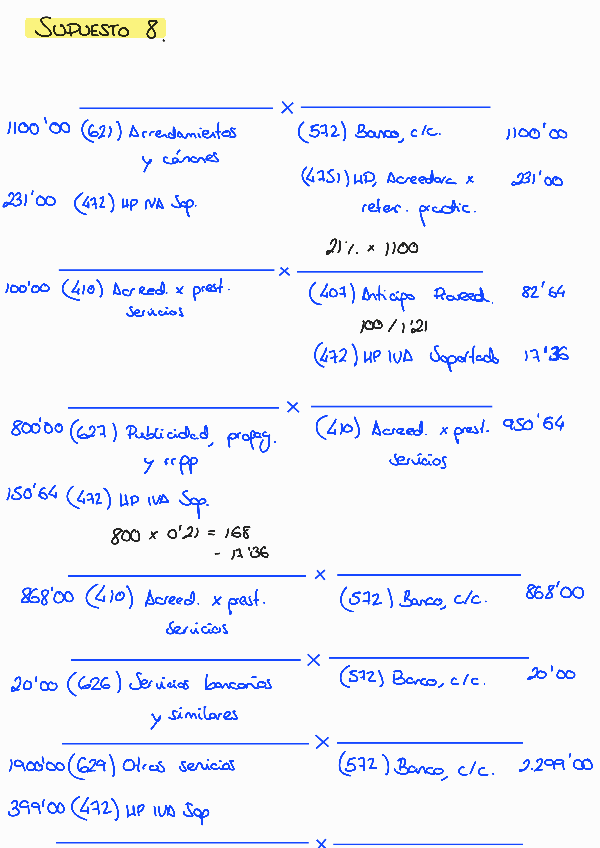 SUPUESTO 8.
x
1100'00 (621) Arrendamientos (572) Banco, c/c. 1100'00
y cánones
(4751) HP, Acreedora x 231'00
231'00 (472) HP IVA Sop. reten. practic.
21% x 1100
x
100'00 (410) Acreed. x prest. (407) Anticipo Proveed. 82'64
servicios
100 / 1'21
(472) HP IVA Soportado 17'36
x
800'00 (627) Publicidad, propag. (410) Acreed. x prest. 950'64
y rrpp servicios
150'64 (472) HP IVA Sop.
800 x 0'21 = 168
- 17'36
x
868'00 (410) Acreed. x prest. (572) Banco, c/c. 868'00
servicios
x
20'00 (626) Servicios bancarios (572) Banco, c/c. 20'00
y similares
x
1900'00 (629) Otros servicios (572) Banco, c/c. 2.299'00
399'00 (472) HP IVA Sop
x